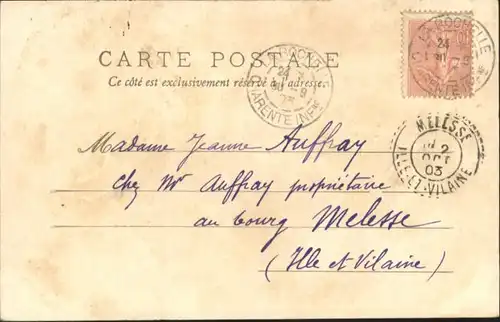 CARTE POSTALE
Ce côté est exclusivement réservé à l'adresse.
LA ROCHELLE
24
CHARENTE INFRE
LA ROCHELLE
24
CHARENTE INFRE
MELESSE
2
OCT
03
ILLE-ET-VILAINE
Madame Jeanne Auffray
chez Mr Auffray propriétaire
au bourg Melesse
(Ille et Vilaine)